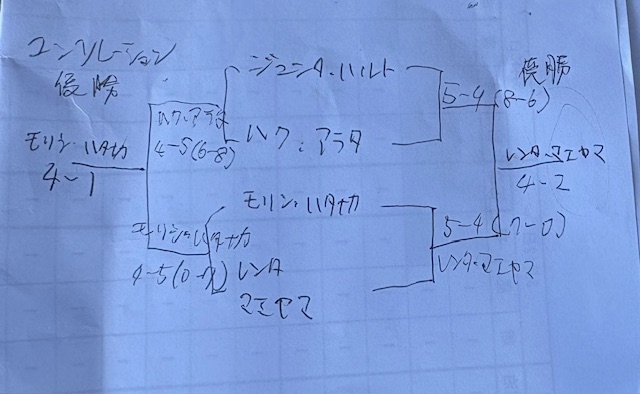 コンソレーション
優勝
モリシ・ハタナカ
4-1
ハク・アラタ
4-5(6-8)
モリシ・ハタナカ
4-5(0-7)
ジュンタ・ハルト
ハク・アラタ
モリシ・ハタナカ
レンタ
マエヤマ
5-4(8-6)
5-4(7-0)
レンタ・マエヤマ
優勝
レンタ・マエヤマ
4-2